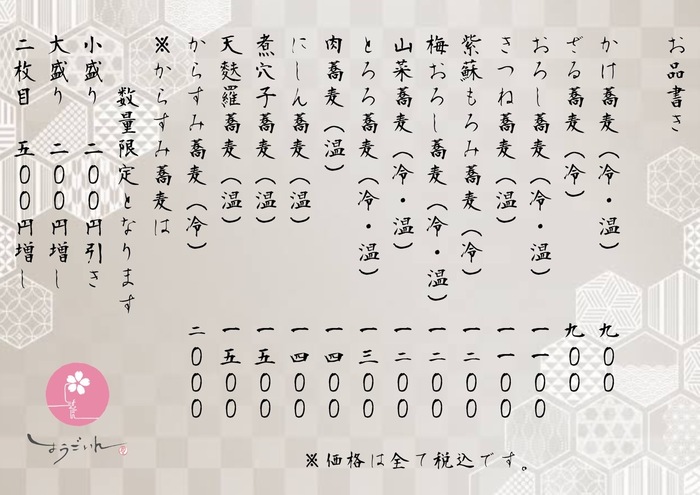 お品書き
かけ蕎麦（冷・温） 九〇〇
ざる蕎麦（冷） 九〇〇
おろし蕎麦（冷・温） 一一〇〇
きつね蕎麦（温） 一一〇〇
紫蘇もろみ蕎麦（冷） 一二〇〇
梅おろし蕎麦（冷・温） 一二〇〇
山菜蕎麦（冷・温） 一二〇〇
とろろ蕎麦（冷・温） 一三〇〇
肉蕎麦（温） 一四〇〇
にしん蕎麦（温） 一四〇〇
煮穴子蕎麦（温） 一五〇〇
天麩羅蕎麦（温） 一五〇〇
からすみ蕎麦（冷） 二〇〇〇
※からすみ蕎麦は
数量限定となります
小盛り 二〇〇円引き
大盛り 二〇〇円増し
二枚目 五〇〇円増し
しょうごいん
※価格は全て税込です。